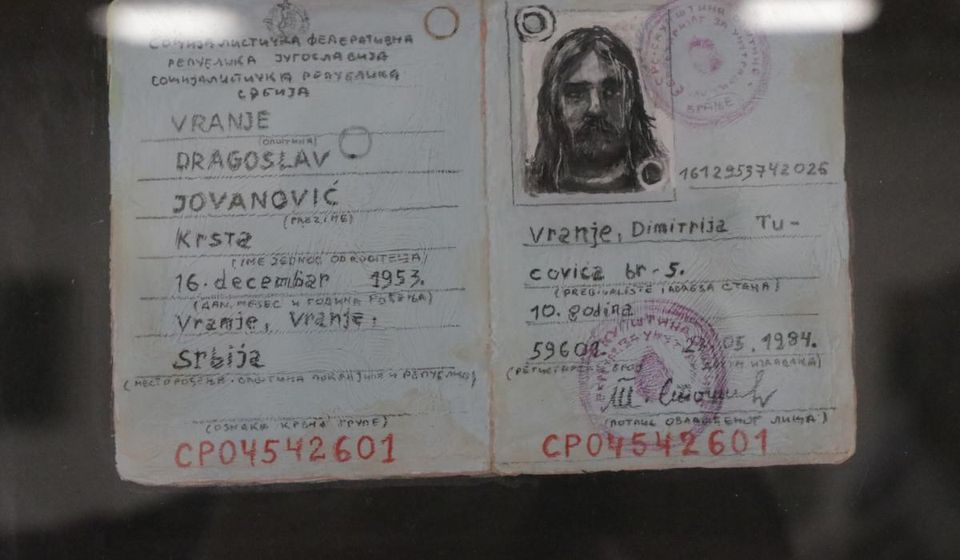 СОЦИЈАЛИСТИЧКА ФЕДЕРАТИВНА
РЕПУБЛИКА ЈУГОСЛАВИЈА
СОЦИЈАЛИСТИЧКА РЕПУБЛИКА
СРБИЈА
VRANJE
(ОПШТИНА)
DRAGOSLAV
JOVANOVIĆ
(ПРЕЗИМЕ)
Krsta
(ИМЕ ЈЕДНОГ ОД РОДИТЕЉА)
16. decembar 1953.
(ДАН, МЕСЕЦ И ГОДИНА РОЂЕЊА)
Vranje, Vranje,
Srbija
(МЕСТО РОЂЕЊА, ОПШТИНА
(ОЗНАКА КРВНЕ ГРУПЕ)
СР04542601
ВРАЊЕ
1612953742026
Vranje, Dimitrija Tu-
covića br-5.
(ПРЕБИВАЛИШТЕ И АДРЕСА СТАНА)
10. godina
05. 1984.
(ПОТПИС ОВЛАШЋЕНОГ ЛИЦА)
СР04542601